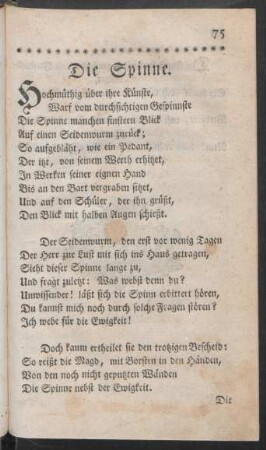 75
Die Spinne.
Hochmüthig über ihre Künste,
Warf vom durchsichtigen Gespinnste
Die Spinne manchen finstern Blick
Auf einen Seidenwurm zurück;
So aufgebläht, wie ein Pedant,
Der itzt, von seinem Werth erhitzet,
In Werken seiner eignen Hand
Bis an den Bart vergraben sitzet,
Und auf den Schüler, der ihn grüßt,
Den Blick mit halben Augen schießt.
Der Seidenwurm, den erst vor wenig Tagen
Der Herr zur Lust mit sich ins Haus getragen,
Sieht dieser Spinne lange zu,
Und fragt zuletzt: Was webst denn du?
Unwissender! läßt sich die Spinn erbittert hören,
Du kannst mich noch durch solche Fragen stören?
Ich webe für die Ewigkeit!
Doch kaum ertheilet sie den trotzigen Bescheid:
So reißt die Magd, mit Borsten in den Händen,
Von den noch nicht geputzten Wänden
Die Spinne nebst der Ewigkeit.
Die